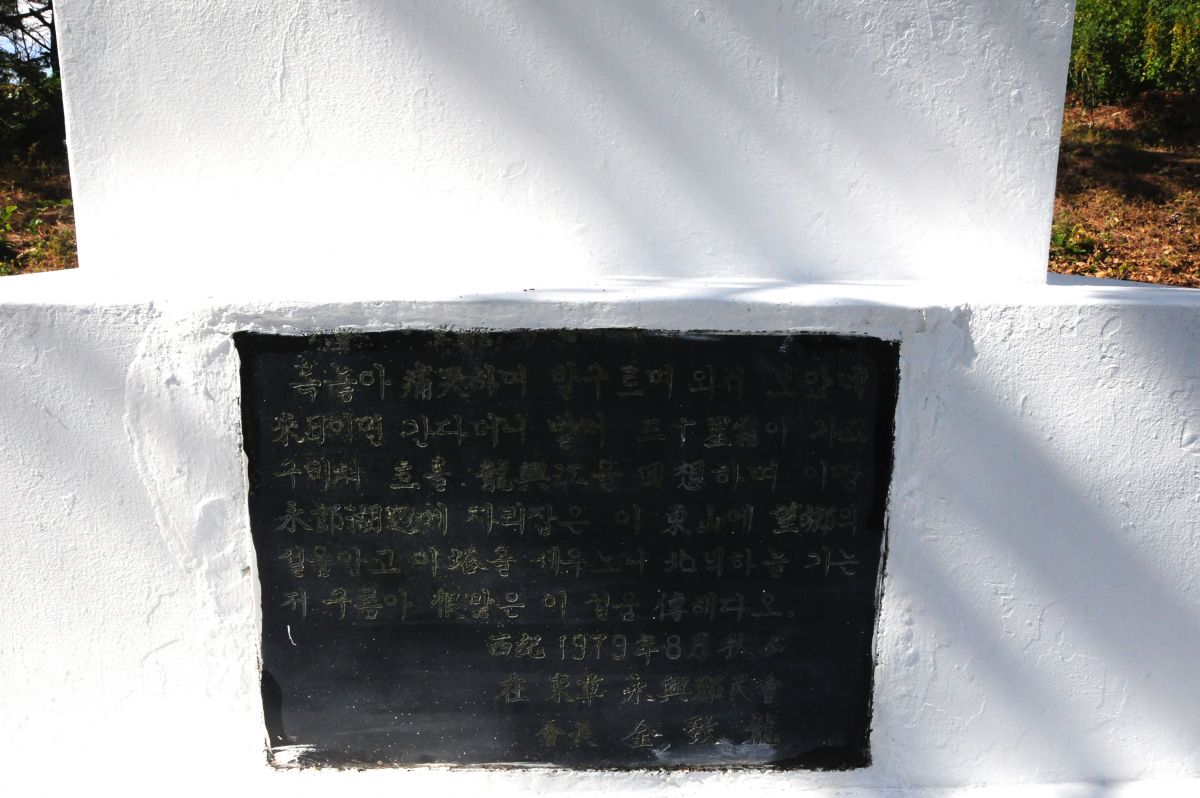 목놓아 痛哭하며 발구르며 외쳐 보았네
來日이면 간다더니 벌써 三十星霜이 가고
구비쳐 흐를 龍興江을 回想하며 이땅
永郎湖畔에 자리잡은 이 東山에 望鄕의
설움안고 이塔을 세우노니 北녁하늘 가는
저 구름아 恨많은 이 설움 傳해다오.
西紀 1979年 8月 秋夕
在 束草 永興鄕民會
會長 金 龍